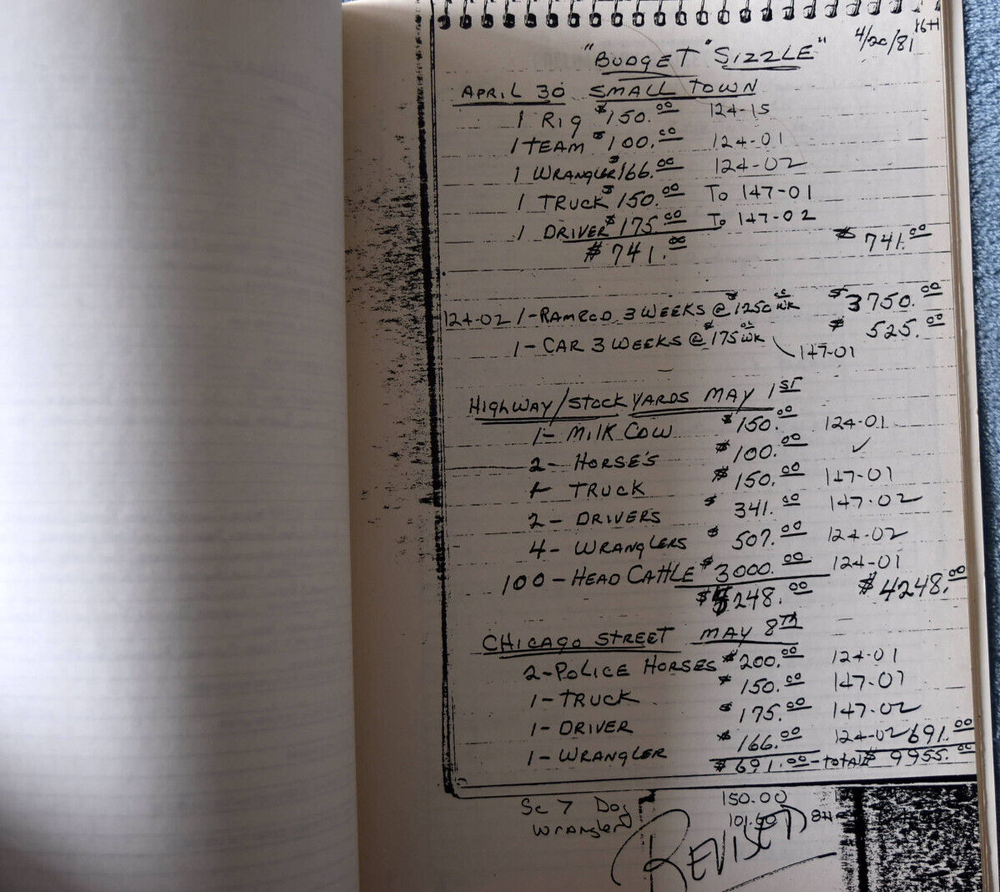 16H
4/20/81
"BUDGET" SIZZLE"
APRIL 30 SMALL TOWN
1 Rig $150.00 124-15
1 TEAM $100.00 124-01
1 WRANGLER $166.00 124-02
1 TRUCK $150.00 To 147-01
1 DRIVER $175.00 To 147-02
$741.00 $741.00
124-02 1-RAMROD 3 WEEKS @ $1250 WK $3750.00
1-CAR 3 WEEKS @ $175.00 WK $525.00
147-01
HIGHWAY/STOCK YARDS MAY 1ST
1- MILK COW $150.00 124-01
2- HORSE'S $100.00 ✓
1- TRUCK $150.00 147-01
2- DRIVERS $341.00 147-02
4- WRANGLERS $507.00 124-02
100-HEAD CATTLE $3000.00 124-01
$4248.00 $4248.00
CHICAGO STREET MAY 8TH
2-POLICE HORSES $200.00 124-01
1-TRUCK $150.00 147-01
1-DRIVER $175.00 147-02
1-WRANGLER $166.00 124-02 691.00
$691.00-total $9955.00
Sc 7 Dog 150.00
Wrangler 8H
REVISED